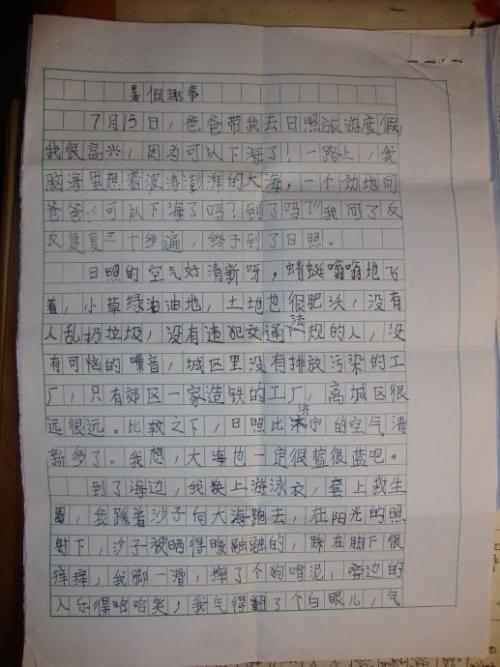 暑假趣事
7月15日，爸爸带我去日照旅游度假
我很高兴，因为可以下海了！一路上，我
脑海里想着波涛澎湃的大海，一个劲地问
爸爸：“可以下海了吗？到了吗？”我问了反
反复复三十多遍，终于到了日照。
日照的空气好清新呀，蜻蜓嗡嗡地飞
着，小草绿油油地，土地也很肥沃，没有
人乱扔垃圾，没有违犯交通法规的人，没
有可恼的噪音，城区里没有排放污染的工
厂，只有郊区一家造铁的工厂，离城区很
远很远。比较之下，日照比济宁的空气清
新多了。我想，大海也一定很蓝很蓝吧。
到了海边，我换上游泳衣，套上救生
圈，我踩着沙子向大海跑去，在阳光的照
射下，沙子被晒得暖融融的，踩在脚下很
痒痒，我脚一滑，摔了个狗啃泥，旁边的
人乐得哈哈笑，我气得翻了个白眼儿，气